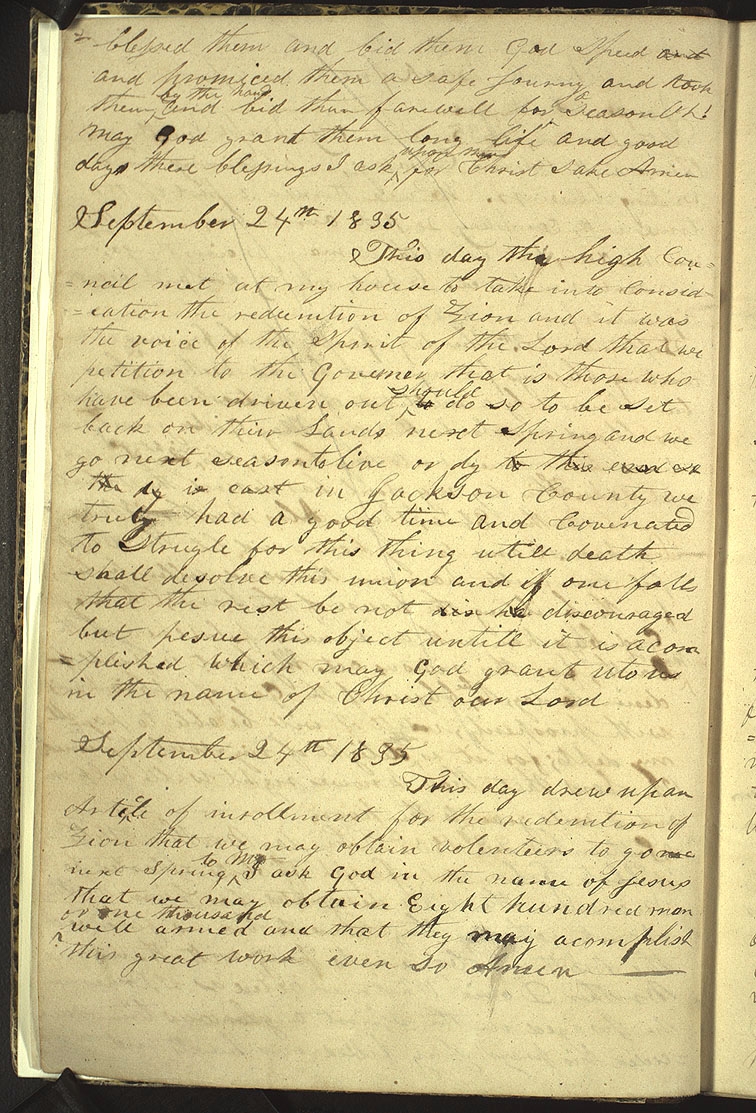 = blessed them and bid them God speed and
and promiced them a safe Journy and took
them by the hand and bid them farewell for a season Oh!
may God grant them long life and good
days these blessings I ask upon them for Christ sake Amen
September 24th 1835
This day the high Cou=
=ncil met at my house to take into Consid
=eation the redemtion of Zion and it was
the voice of the spirit of the Lord that we
petition to the Governer that is those who
have been driven out should to do so to be set
back on their Lands next spring and we
go next season to live or dy to this end so
the dy is cast in Jackson County we
truly had a good time and Covenated
to strugle for this thing utill death
shall desolve this union and if one falls
that the rest be not discouraged
but pesue this object untill it is acom
=plished which may God grant u to us
in the name of Christ our Lord
September 24th 1835
This day drew up an
Article of inrollment for the redemtion of
Zion that we may obtain volenteers to go me
next Spring to Mo I ask God in the name of Jesus
that we may obtain Eight hundred men
or one thousand
well armed and that they may acomplish
this great work even so Amen ——